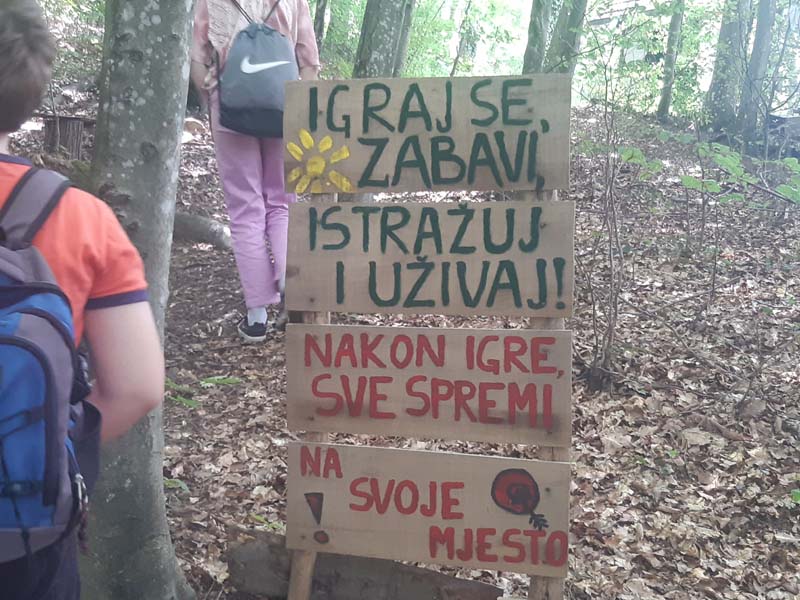 IGRAJ SE,
ZABAVI,
ISTRAŽUJ
I UŽIVAJ!
NAKON IGRE,
SVE SPREMI
NA
SVOJE
MJESTO